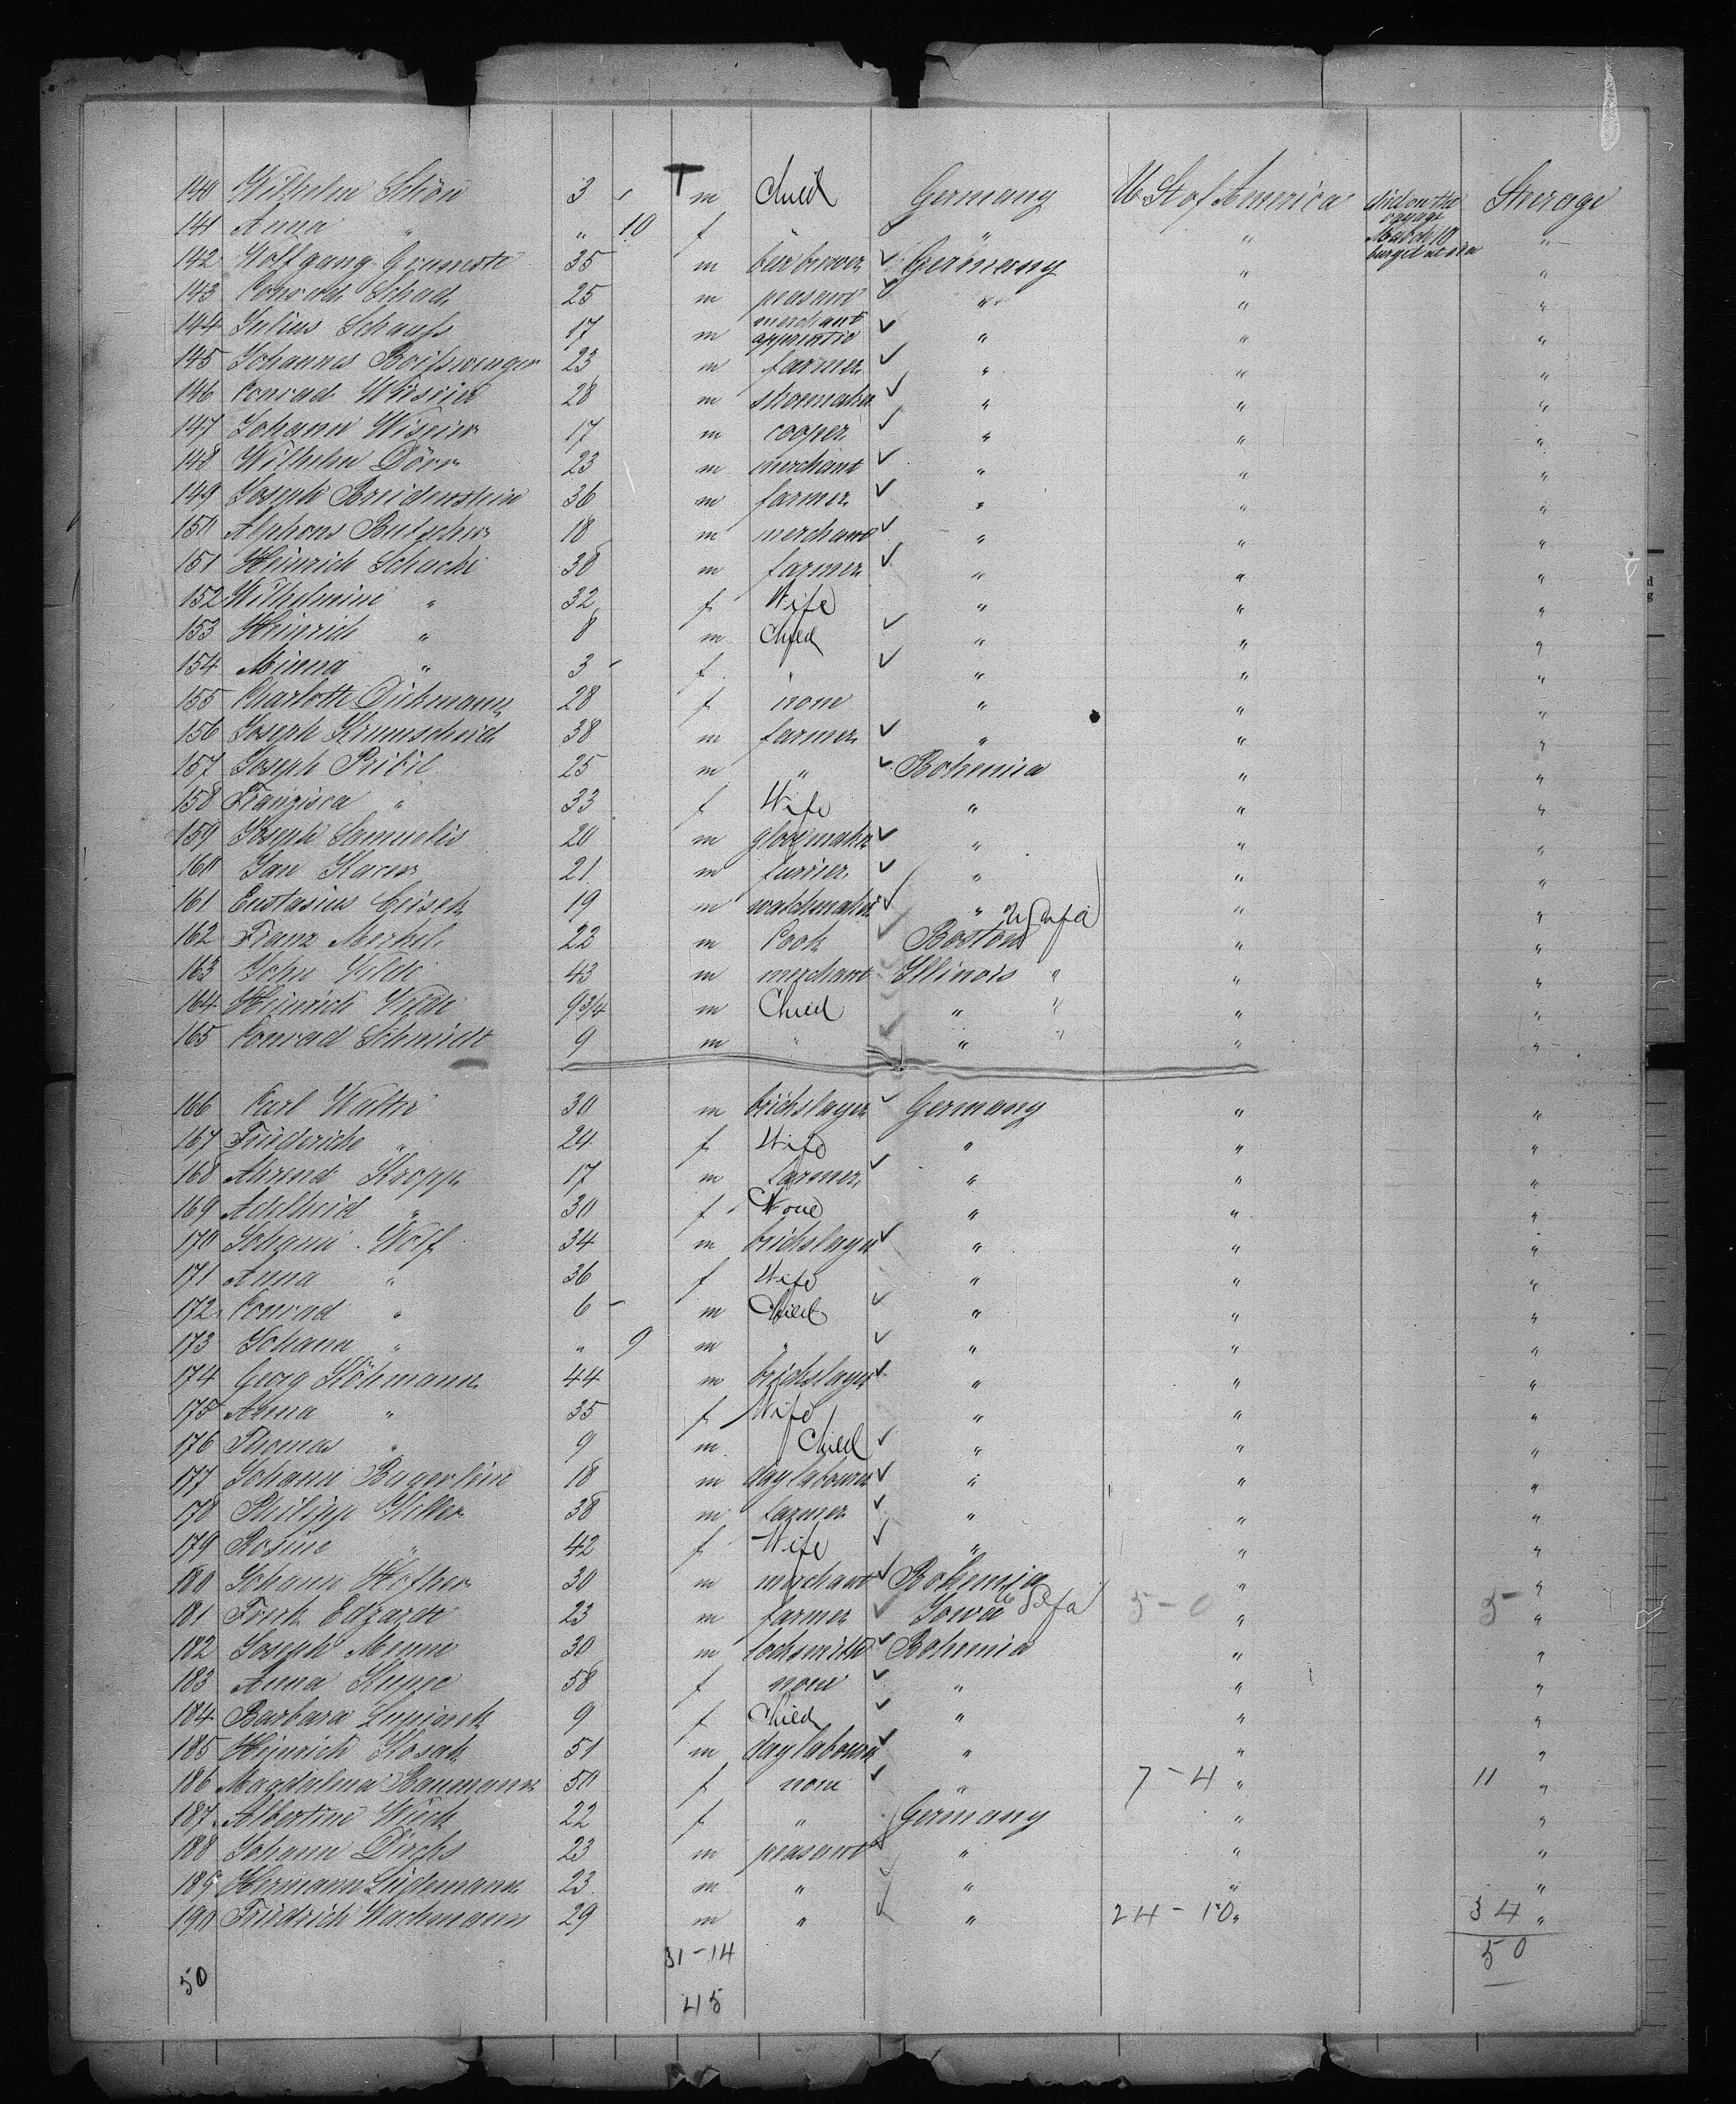 140 Wilhelm Schön 3 - m Child Germany U. St of America died on the voyage March 10 Steerage
141 Anna " " 10 f " " "
142 Wolfgang 35 m ✓ Germany " "
143 Conrad Schad 25 m peasant ✓ " " "
144 Julius Schauss 17 m merchant ✓ " " "
145 Johannes 23 m farmer ✓ " " "
146 Conrad 28 m ✓ " " "
147 Johann 17 m cooper ✓ " " "
148 Wilhelm Dörr 23 m merchant ✓ " " "
149 Joseph Breidenstein 36 m farmer ✓ " " "
150 Alphons Butscher 18 m merchant ✓ " " "
151 Heinrich Schucht 38 m farmer ✓ " " "
152 Wilhelmine " 32 f Wife " " "
153 Heinrich " 8 m Child ✓ " " "
154 Minna " 3 - f " ✓ " " "
155 Charlotte Dickmann 28 f none " " "
156 Joseph Krumscheid 38 m farmer ✓ " " "
157 Joseph Pribil 25 m " ✓ Bohemia " "
158 Franzisca " 33 f Wife " " "
159 Joseph Samuelis 20 m ✓ " " "
160 Jan 21 m furrier ✓ " " "
161 Eustasius 19 m watchmaker ✓ " " "
162 Franz Merkel 22 m Cook ✓ Boston " "
163 John 43 m merchant ✓ Illinois " " "
164 Heinrich 9 3/4 m Child " " " "
165 Conrad Schmidt 9 m " ✓ " " " "
166 Carl Walter 30 m bricklayer ✓ Germany " "
167 Friederike " 24 f Wife " " "
168 Ahrend Kropp 17 m farmer ✓ " " "
169 Adelheid " 30 f None " " "
170 Johann Wolf 34 m bricklayer ✓ " " "
171 Anna " 36 f Wife " " "
172 Conrad " 6 - m Child ✓ " " "
173 Johann " " 9 m " ✓ " " "
174 Georg Köhmann 44 m bricklayer ✓ " " "
175 Anna " 35 f Wife " " "
176 Thomas " 9 m Child ✓ " " "
177 Johann 18 m day labourer ✓ " " "
178 Philipp 38 m farmer ✓ " " "
179 Rosine " 42 f Wife ✓ " " "
180 Johann 30 m merchant ✓ Bohemia " "
181 Edzardt 23 m farmer ✓ Iowa 5 - 0 " 5 "
182 Joseph 30 m locksmith ✓ Bohemia " "
183 Anna 58 f none ✓ " " "
184 Barbara 9 f Child ✓ " " "
185 Heinrich Kosak 51 m day labourer ✓ " " "
186 Magdalena Baumann 50 f none ✓ " 7 - 4 " 11 "
187 Albertine Wieck 22 f " Germany " "
188 Johann Dircks 23 m peasant ✓ " " "
189 Hermann Lüdemann 23 m " ✓ " " "
190 Friedrich Wachmann 29 m " ✓ " 24 - 10 " 34 "
50 31 - 14 50
45